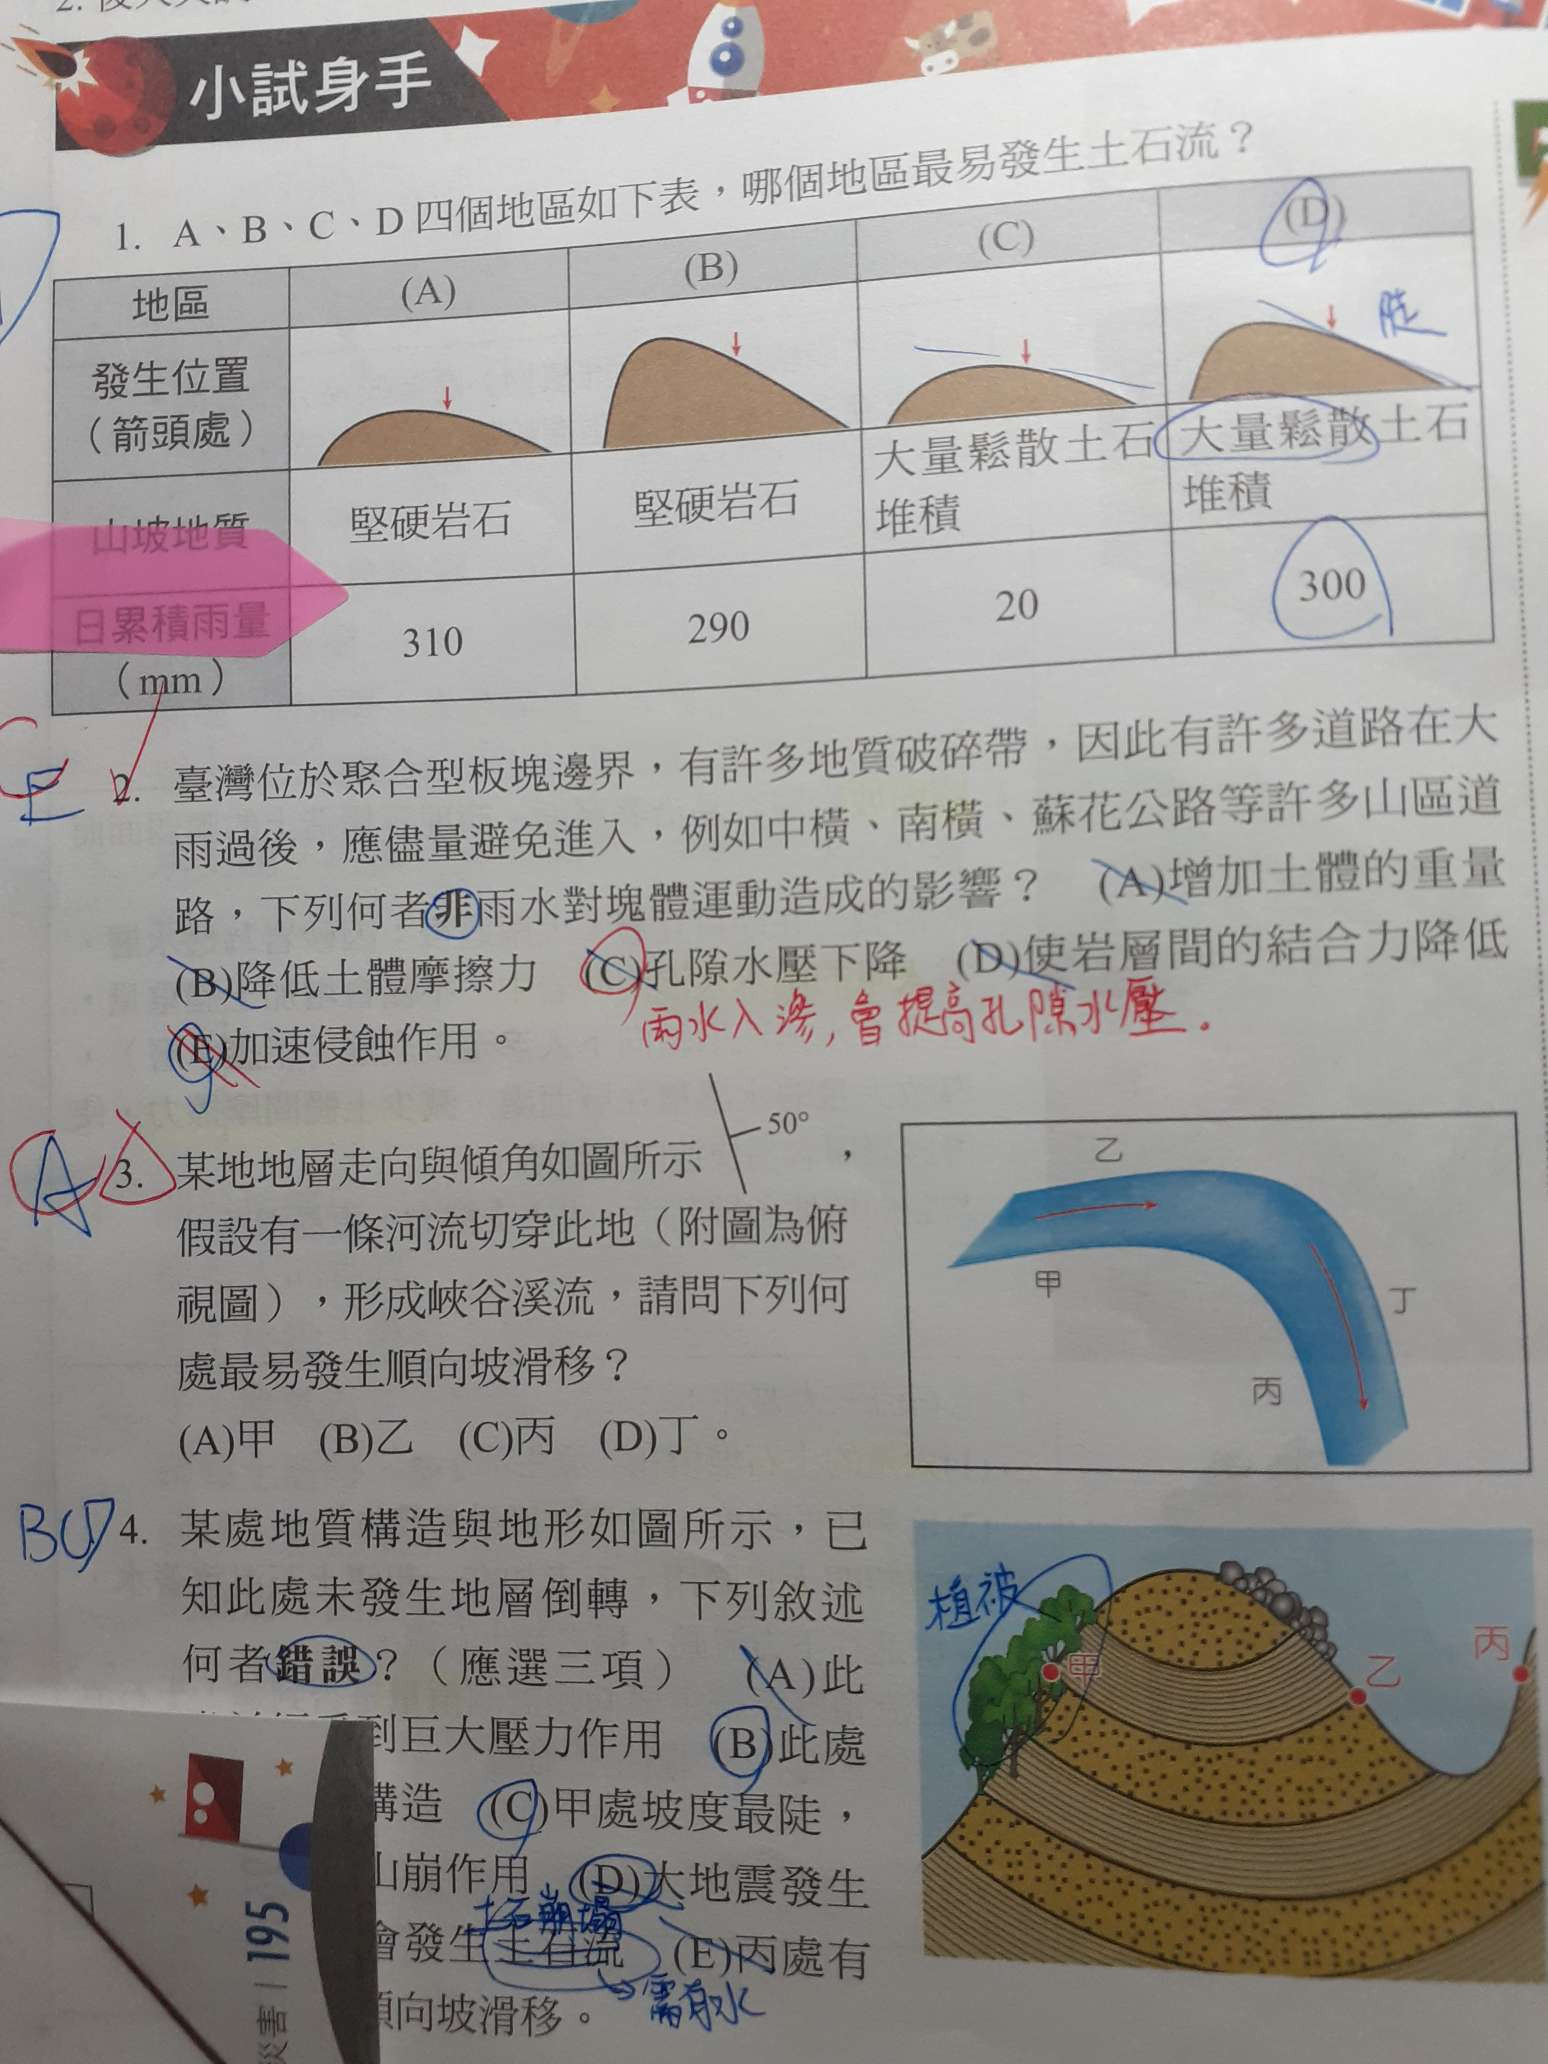 小試身手
1. A、B、C、D 四個地區如下表，哪個地區最易發生土石流？
地區 (A) (B) (C) (D)
發生位置
（箭頭處）
陡
山坡地質 堅硬岩石 堅硬岩石 大量鬆散土石堆積 大量鬆散土石堆積
日累積雨量
（mm） 310 290 20 300
E 2. 臺灣位於聚合型板塊邊界，有許多地質破碎帶，因此有許多道路在大
雨過後，應儘量避免進入，例如中橫、南橫、蘇花公路等許多山區道
路，下列何者非雨水對塊體運動造成的影響？ (A)增加土體的重量
(B)降低土體摩擦力 (C)孔隙水壓下降 (D)使岩層間的結合力降低
雨水入滲，會提高孔隙水壓。
(E)加速侵蝕作用。
50°
A 3. 某地地層走向與傾角如圖所示，
假設有一條河流切穿此地（附圖為俯
視圖），形成峽谷溪流，請問下列何
處最易發生順向坡滑移？
(A)甲 (B)乙 (C)丙 (D)丁。
乙
甲
丁
丙
4. 某處地質構造與地形如圖所示，已
知此處未發生地層倒轉，下列敘述
何者錯誤？（應選三項） (A)此
到巨大壓力作用 (B)此處
構造 (C)甲處坡度最陡，
山崩作用 (D)大地震發生
土石崩塌
會發生土石流 (E)丙處有
順向坡滑移。
需有水
植被
甲
乙
丙
195
災害